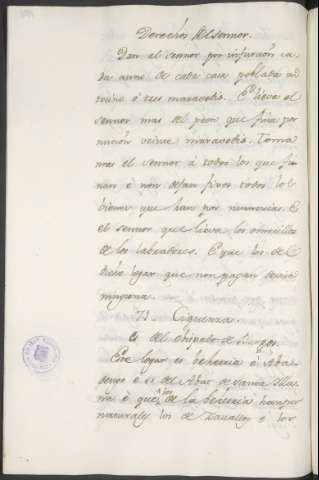 Derechos del sennor.
Dan al sennor por infurcion ca
da anno de cada casa poblada ad
tres maravedis. E lieva el
sennor mas del peon que fina por
nuncion veinte maravedis. Toma
mas el sennor a todos los que fi
nan è non dejan fijos todos los
bienes que han por mannerias. E
el sennor que lieva los omecillos
de los labradores. E que los del
dicho logar que non pagan
ninguna.
71. Ciguenza.
Es del obispado de Burgos.
Este logar es behetria è Aba
dengo è es del Abat de Santa Illa
na è que los de la behetria han por
naturales los de Zavallos è los